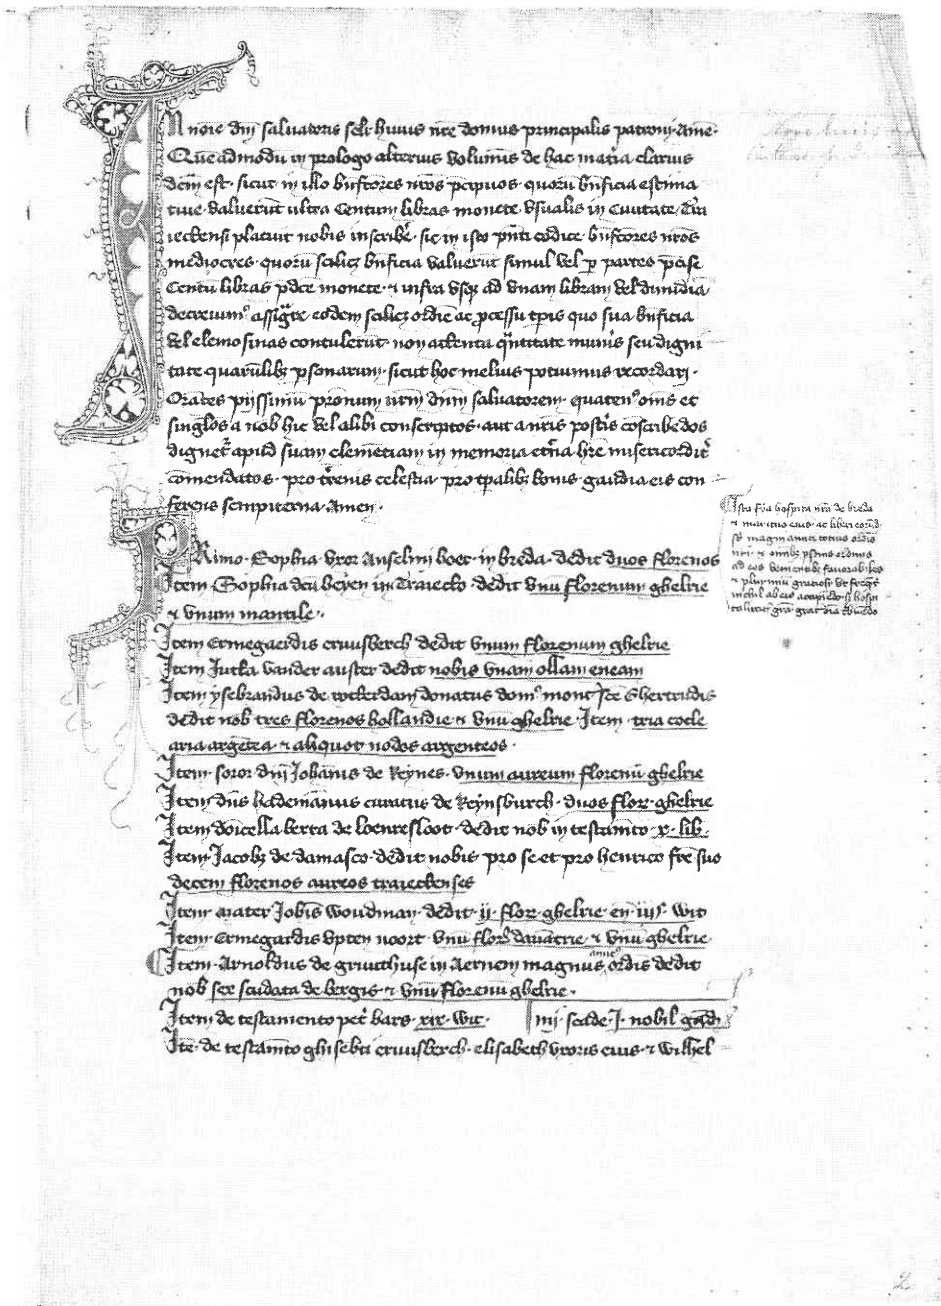 In noīe dnī saluatoris scli huius nr̄e domus principalis patronj. Amē.
Que admodū in prologo alterius voluminis de hac mat̄ia clarius
dcm̄ est. sicut in illo bn̄fc̄ores nr̄os p̄cipuos. quorū bn̄ficia estima
tiue valuerūt ultra Centum libras monete vsualis in Ciuitate Tra
iectensi placuit nobis inscribē. sic in isto pn̄ti codice bn̄fc̄ores nr̄os
mediocres. quorū scilicꝫ bn̄ficia valuerūt simul vel ꝑ partes p̄cise
Centū libras p̄dc̄e monete. ⁊ infra vsqꝫ ad vnam libram vel dimidiā
decreuimꝰ assigᷓre eodem scilicꝫ ordīe ac ꝓcessu tp̄is quo sua bn̄ficia
vel elemosinas contulerūt. non attenta qᷓntitate mun̄is seu digni
tate quarūlibꝫ ꝑsonarum. sicut hoc melius potuimus recordarj.
Orātes pijssimū pr̄onum nr̄m dn̄m saluatorem. quatenꝰ om̄s et
singlos a nob̄ hic vel alibi conscriptos. aut antis post̄is cōscribēdos
dignet᷑ apud suam clemētiam in memoria et̄na hr̄e misericordit᷑
cōmendatos. pro t̄renis celestia. pro tp̄alibꝫ bonis. gaudia eis con
ferens sempiterna. Amen.
Primo. Sophia vxor Anselmi boet. in breda. dedit duos florenos
Item Sophia deu beyen in Traiecto dedit vnū florenum ghelrie
⁊ vnum mantile.
Item Ermegardis cruusberch dedit vnum florenum ghelrie
Item Jutta vander auster dedit nobis vnam ollam eneam
Item ysebrandus de rotterdam donatus domꝰ mont̄ sc̄e Ghertrudis
dedit nob̄ tres florenos hollandie ⁊ vnū ghelrie. Item. tria cocle
aria argētea ⁊ aliquot nodos argenteos.
Item. soror dn̄i Johannis de Reynes. vnum aureum florenū ghelrie
Item dn̄s hademānus curatus de Reynsburch. duos flor. ghelrie
Item domicella berta de loenresloot. dedit nob̄ in testam̄to. x. lib.
Item. Jacobꝫ de damasco. dedit nobis pro se et pro henrico fr̄e suo
decem florenos aureos traiectenses
Item mater Joh̄is woudman. dedit. ij. flor. ghelrie en̄ iiij. wit
Item. Ermegardis vpten noort. vnū flor̄ dauātrie ⁊ vnū ghelrie.
Item. Arnoldus de gruuthuse in Aernem magnus amicꝰ ordīs dedit
nob̄ sex scudata de bergis. ⁊ vnū florenū ghelrie.
Item de testamento pet̄ bars. xix. wit. iiij. scade. J. nobil
Itē. de testam̄to ghisebti cruusberch. elisabeth vxoris eius. ⁊ wilhel
Ista fuit hospita nr̄a de breda
⁊ maritus eius. ac liberi eorūd
magni amici totius ordīs
nr̄i. ⁊ om̄ibꝫ ꝑsonis ordinis
ad eos
⁊ plurimū
nichil ab eis accipiēdo
2